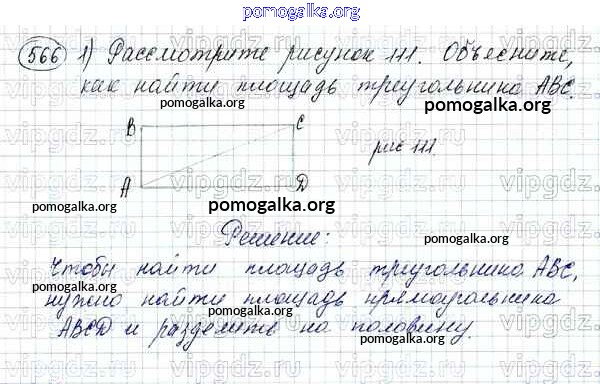 pomogalka.org
566 1) Рассмотрите рисунок 111. Объясните,
как найти площадь треугольника ABC.
pomogalka.org pomogalka.org
B C
рис 111.
A D
pomogalka.org pomogalka.org pomogalka.org
Решение:
Чтобы найти площадь треугольника ABC,
pomogalka.org pomogalka.org
нужно найти площадь прямоугольника
ABCD и разделить на половину.
pomogalka.org
vipgdz.ru vipgdz.ru vipgdz.ru